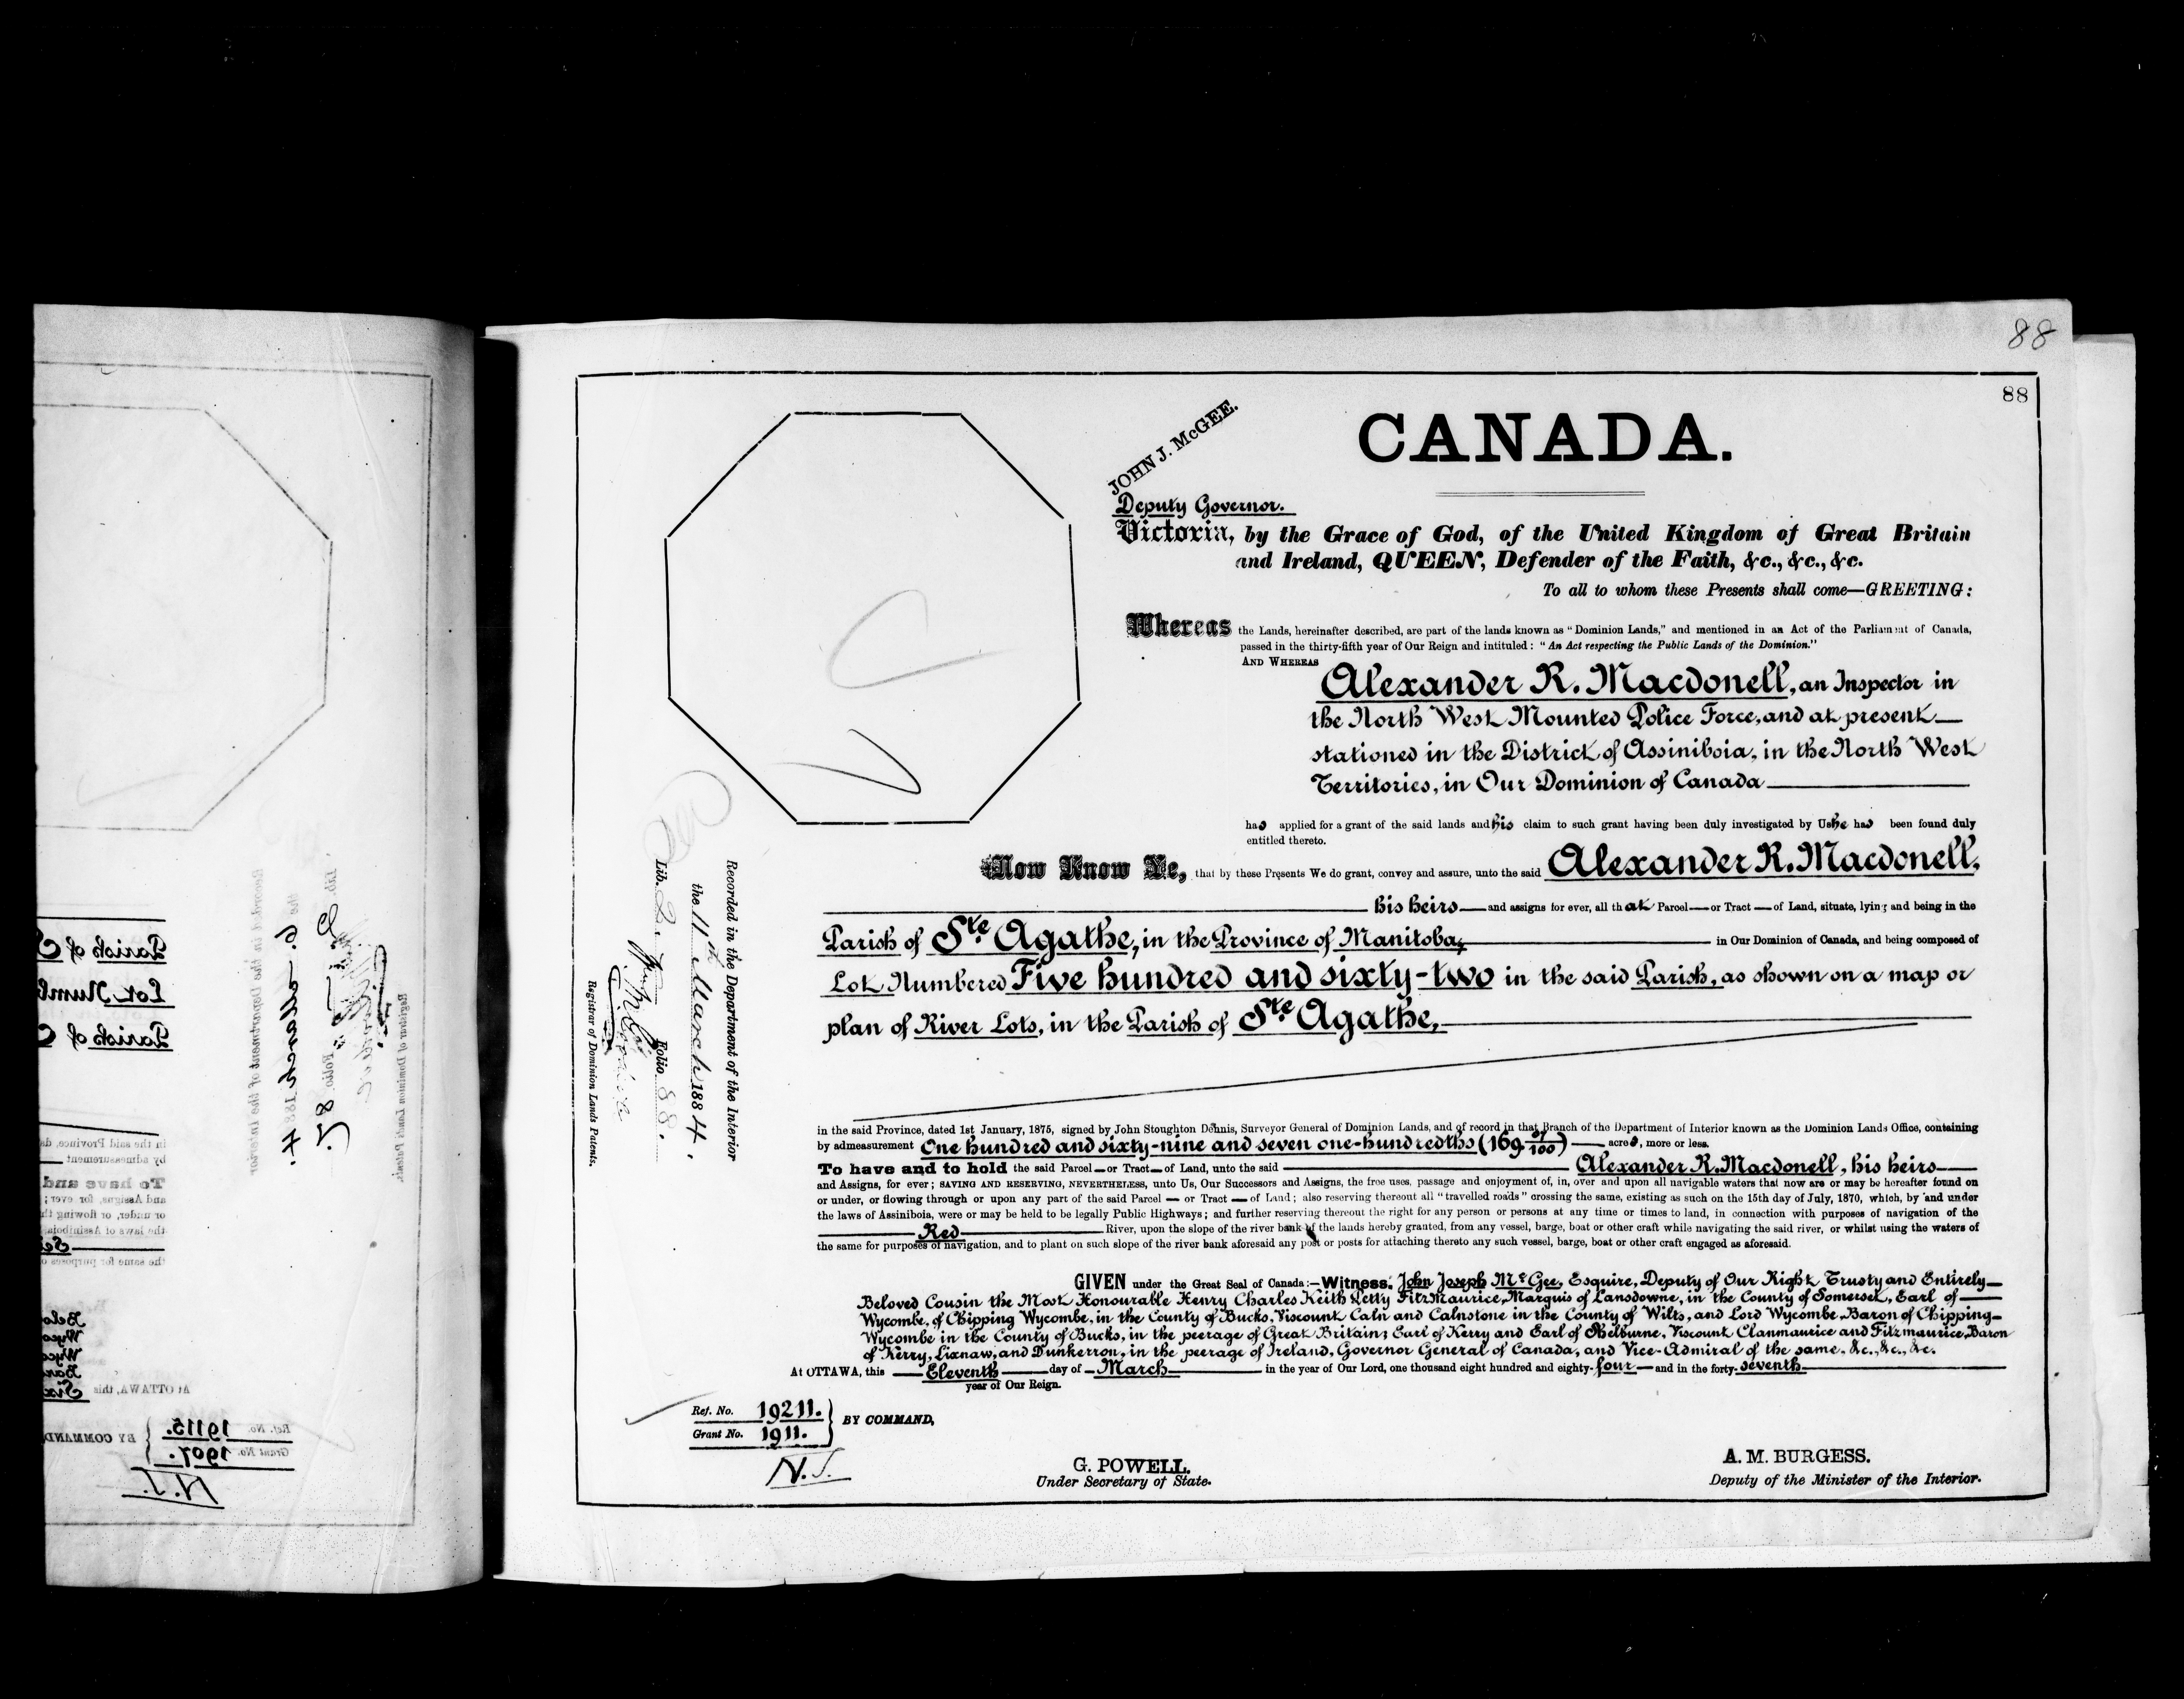 88
88
CANADA.
JOHN J. McGEE.
Deputy Governor.
Victoria, by the Grace of God, of the United Kingdom of Great Britain
and Ireland, QUEEN, Defender of the Faith, &c., &c., &c.
To all to whom these Presents shall come—GREETING:
Whereas the Lands, hereinafter described, are part of the lands known as "Dominion Lands," and mentioned in an Act of the Parliament of Canada,
passed in the thirty-fifth year of Our Reign and intituled: "An Act respecting the Public Lands of the Dominion."
AND WHEREAS
Alexander R. Macdonell, an Inspector in
the North West Mounted Police Force, and at present
stationed in the District of Assiniboia, in the North West
Territories, in Our Dominion of Canada
has applied for a grant of the said lands and his claim to such grant having been duly investigated by Us he has been found duly
entitled thereto.
Now Know Ye, that by these Presents We do grant, convey and assure, unto the said Alexander R. Macdonell,
his heirs — and assigns for ever, all that Parcel — or Tract — of Land, situate, lying and being in the
Parish of Ste Agathe, in the Province of Manitoba, in Our Dominion of Canada, and being composed of
Lot Numbered Five hundred and sixty-two in the said Parish, as shown on a map or
plan of River Lots, in the Parish of Ste Agathe,
in the said Province, dated 1st January, 1875, signed by John Stoughton Dennis, Surveyor General of Dominion Lands, and of record in that Branch of the Department of Interior known as the Dominion Lands Office, containing
by admeasurement One hundred and sixty-nine and seven one-hundredths (169 07/100) — acres, more or less.
To have and to hold the said Parcel — or Tract — of Land, unto the said Alexander R. Macdonell, his heirs
and Assigns, for ever; SAVING AND RESERVING, NEVERTHELESS, unto Us, Our Successors and Assigns, the free uses, passage and enjoyment of, in, over and upon all navigable waters that now are or may be hereafter found on
or under, or flowing through or upon any part of the said Parcel — or Tract — of Land; also reserving thereout all "travelled roads" crossing the same, existing as such on the 15th day of July, 1870, which, by and under
the laws of Assiniboia, were or may be held to be legally Public Highways; and further reserving thereout the right for any person or persons at any time or times to land, in connection with purposes of navigation of the
Red River, upon the slope of the river bank of the lands hereby granted, from any vessel, barge, boat or other craft while navigating the said river, or whilst using the waters of
the same for purposes of navigation, and to plant on such slope of the river bank aforesaid any post or posts for attaching thereto any such vessel, barge, boat or other craft engaged as aforesaid.
GIVEN under the Great Seal of Canada:—Witness. John Joseph McGee, Esquire, Deputy of Our Right Trusty and Entirely
Beloved Cousin the Most Honourable Henry Charles Keith Petty FitzMaurice, Marquis of Lansdowne, in the County of Somerset, Earl of
Wycombe, of Chipping Wycombe, in the County of Bucks, Viscount Caln and Calnstone in the County of Wilts, and Lord Wycombe, Baron of Chipping
Wycombe in the County of Bucks, in the peerage of Great Britain; Earl of Kerry and Earl of Shelburne, Viscount Clanmaurice and Fitzmaurice, Baron
of Kerry, Lixnaw, and Dunkerron, in the peerage of Ireland, Governor General of Canada, and Vice-Admiral of the same, &c., &c., &c.
At OTTAWA, this Eleventh day of March in the year of Our Lord, one thousand eight hundred and eighty-four — and in the forty-seventh
year of Our Reign.
Ref. No. 19211.
Grant No. 1911.
BY COMMAND,
N.J.
G. POWELL.
Under Secretary of State.
A. M. BURGESS.
Deputy of the Minister of the Interior.
Recorded in the Department of the Interior
the 11th March 1884.
Lib. 2. Folio 88.
Registrar of Dominion Lands Patents.
Parish of
Lot Numb
Parish of
in the said Province, da
by admeasurement
To have and
and Assigns, for ever;
or under, or flowing th
the laws of Assiniboia
the same for purposes o
At OTTAWA, this
Ref. No. 19115.
Grant No. 1907.
BY COMMAND
N.J.
Recorded in the Department of the Interior
Lib. 2 Folio 85
Registrar of Dominion Lands Patents.